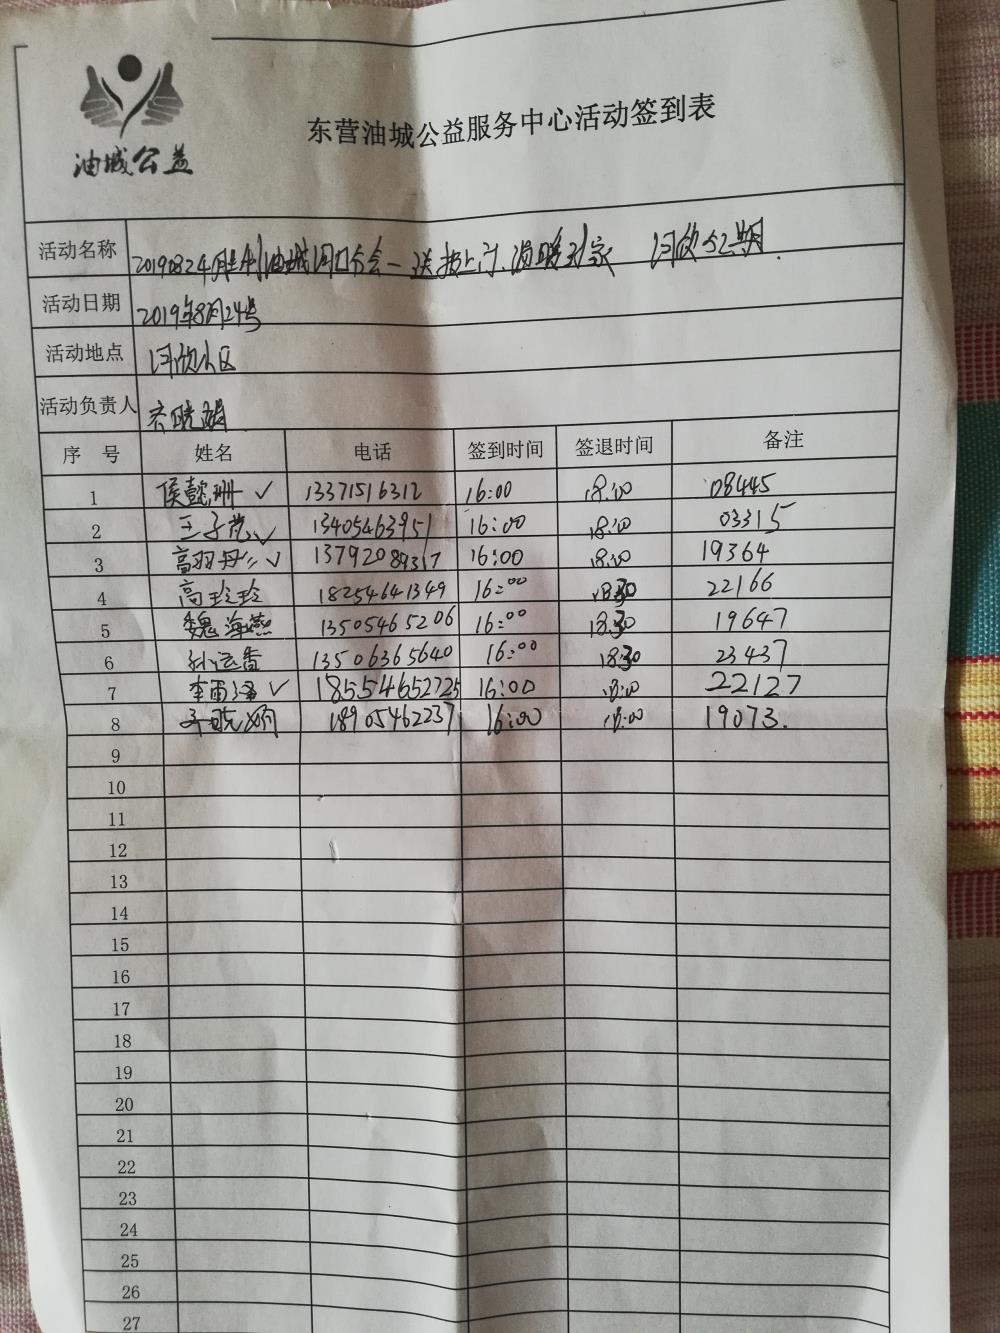 油城公益
东营油城公益服务中心活动签到表
活动名称 20190824 油城河口分会一送报上门、温暖到家 河欣
活动日期 2019年8月24号
活动地点 河欣小区
活动负责人 齐晓娟
序号 姓名 电话 签到时间 签退时间 备注
1 侯懿珊 ✓ 13371516312 16:00 18:00 08445
2 王子 ✓ 13405463951 16:00 18:00 03315
3 高羽丹 ✓ 13792089317 16:00 18:00 19364
4 高玲玲 18254641349 16:00 18:30 22166
5 魏海燕 13505465206 16:00 18:30 19647
6 孙运香 13506365640 16:00 18:30 23437
7 李雨泽 ✓ 18554652725 16:00 18:00 22127
8 齐晓娟 18905462237 16:00 18:00 19073.
9
10
11
12
13
14
15
16
17
18
19
20
21
22
23
24
25
26
27